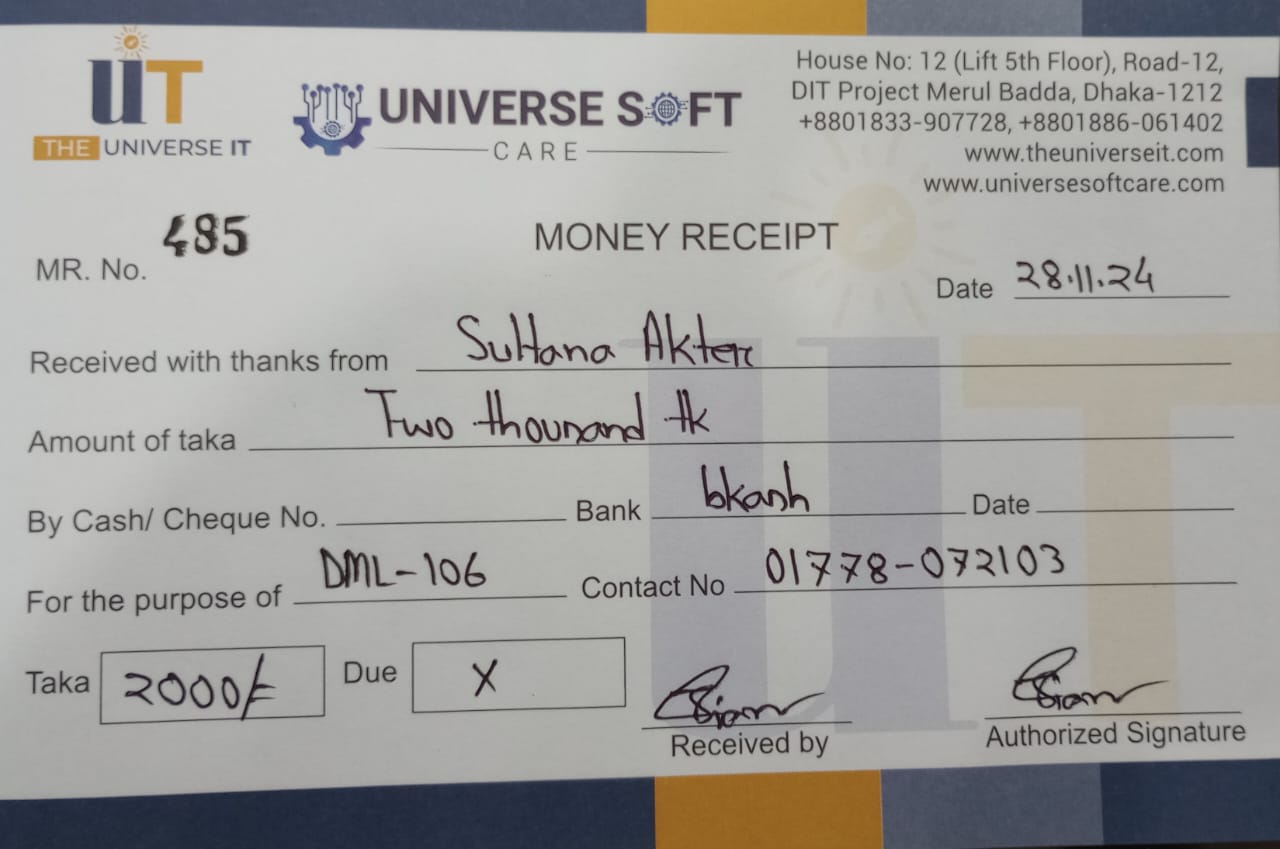 UT
THE UNIVERSE IT
UNIVERSE SOFT
CARE
House No: 12 (Lift 5th Floor), Road-12,
DIT Project Merul Badda, Dhaka-1212
+8801833-907728, +8801886-061402
www.theuniverseit.com
www.universesoftcare.com
MR. No. 485
MONEY RECEIPT
Date 28.11.24
Received with thanks from Sultana Akter
Amount of taka Two thousand tk
By Cash/ Cheque No. Bank bkash Date
For the purpose of DML-106 Contact No 01778-072103
Taka 2000/= Due X
Received by Authorized Signature